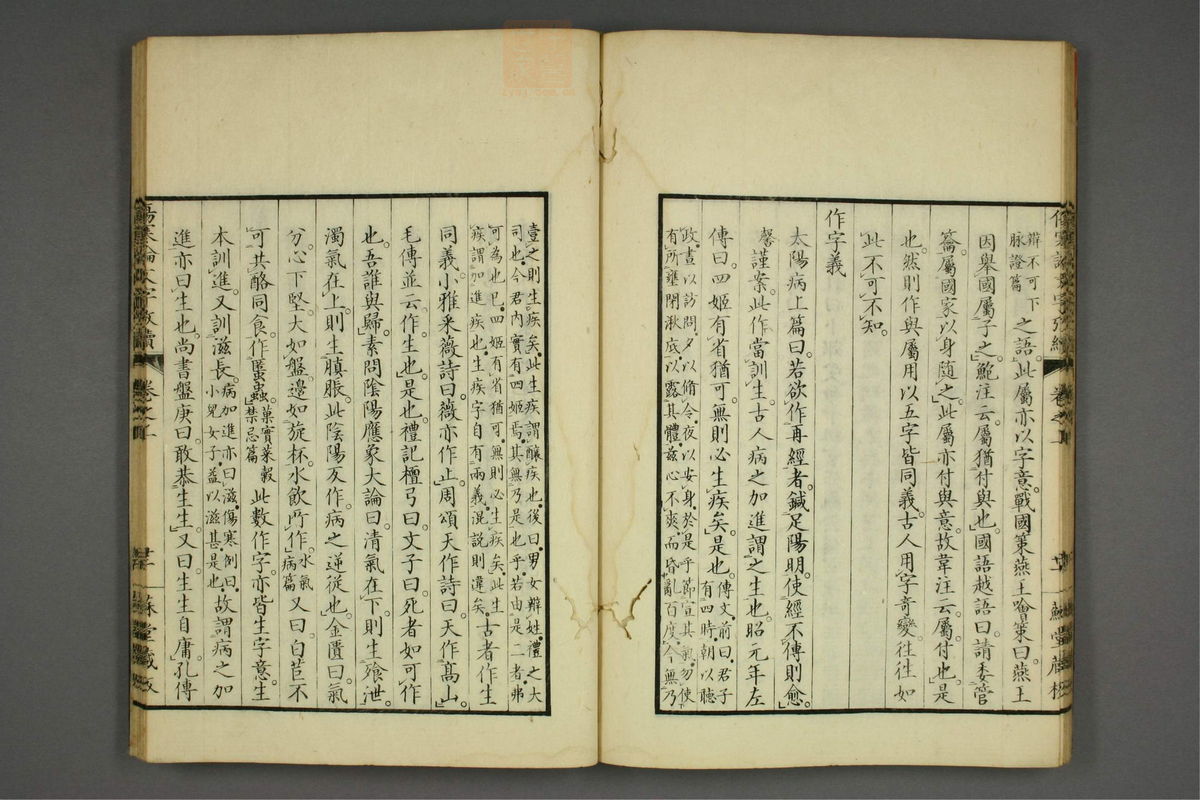 辨不可下
脉證篇
之語。此屬亦以字意。戰國策燕王噲策曰。燕王
因舉國屬子之。鮑注云。屬猶付與也。國語越語曰。請委管
籥。屬國家。以身隨之。此屬亦付與意。故韋注云。屬付也。是
也。然則作與屬用以五字皆同義。古人用字奇變。往往如
此。不可不知。
作字義
太陽病上篇曰。若欲作再經者。鍼足陽明。使經不傳則愈。
謹案。此作當訓生。古人病之加進。謂之生也。昭元年左
傳曰。四姬有省猶可。無則必生疾矣。是也。
傳文。前曰。君子
有四時。朝以聽
政。晝以訪問。夕以脩令。夜以安身。於是乎節宣其氣。勿使
有所壅閉湫底。以露其體。茲心不爽。而昏亂百度。今無乃
壹之。則生疾矣。此生疾謂釀疾也。後曰。男女辨姓。禮之大
司也。今君內實有四姬焉。其無乃是也乎。若由是二者。弗
可為也已。四姬有省猶可。無則必生疾矣。此生
疾謂加進疾也。生疾字自有兩義。混説則違矣。
古者作生
同義。小雅采薇詩曰。薇亦作止。周頌天作詩曰。天作高山。
毛傳並云。作生也。是也。禮記檀弓曰。文子曰。死者如可作
也。吾誰與歸。素問陰陽應象大論曰。清氣在下。則生飱泄。
濁氣在上。則生䐜脹。此陰陽反作。病之逆從也。金匱曰。氣
分。心下堅。大如盤。邊如旋杯。水飲所作。
水氣
病篇
又曰。白苣不
可共酪同食。作䘌蟲。
菓實菜穀
禁忌篇
此數作字。亦皆生字意。生
本訓進。又訓滋長。
病加進亦曰滋。傷寒例曰。
小兒女子。益以滋甚。是也。
故謂病之加
進。亦曰生也。尚書盤庚曰。敢恭生生。又曰。生生自庸。孔傳